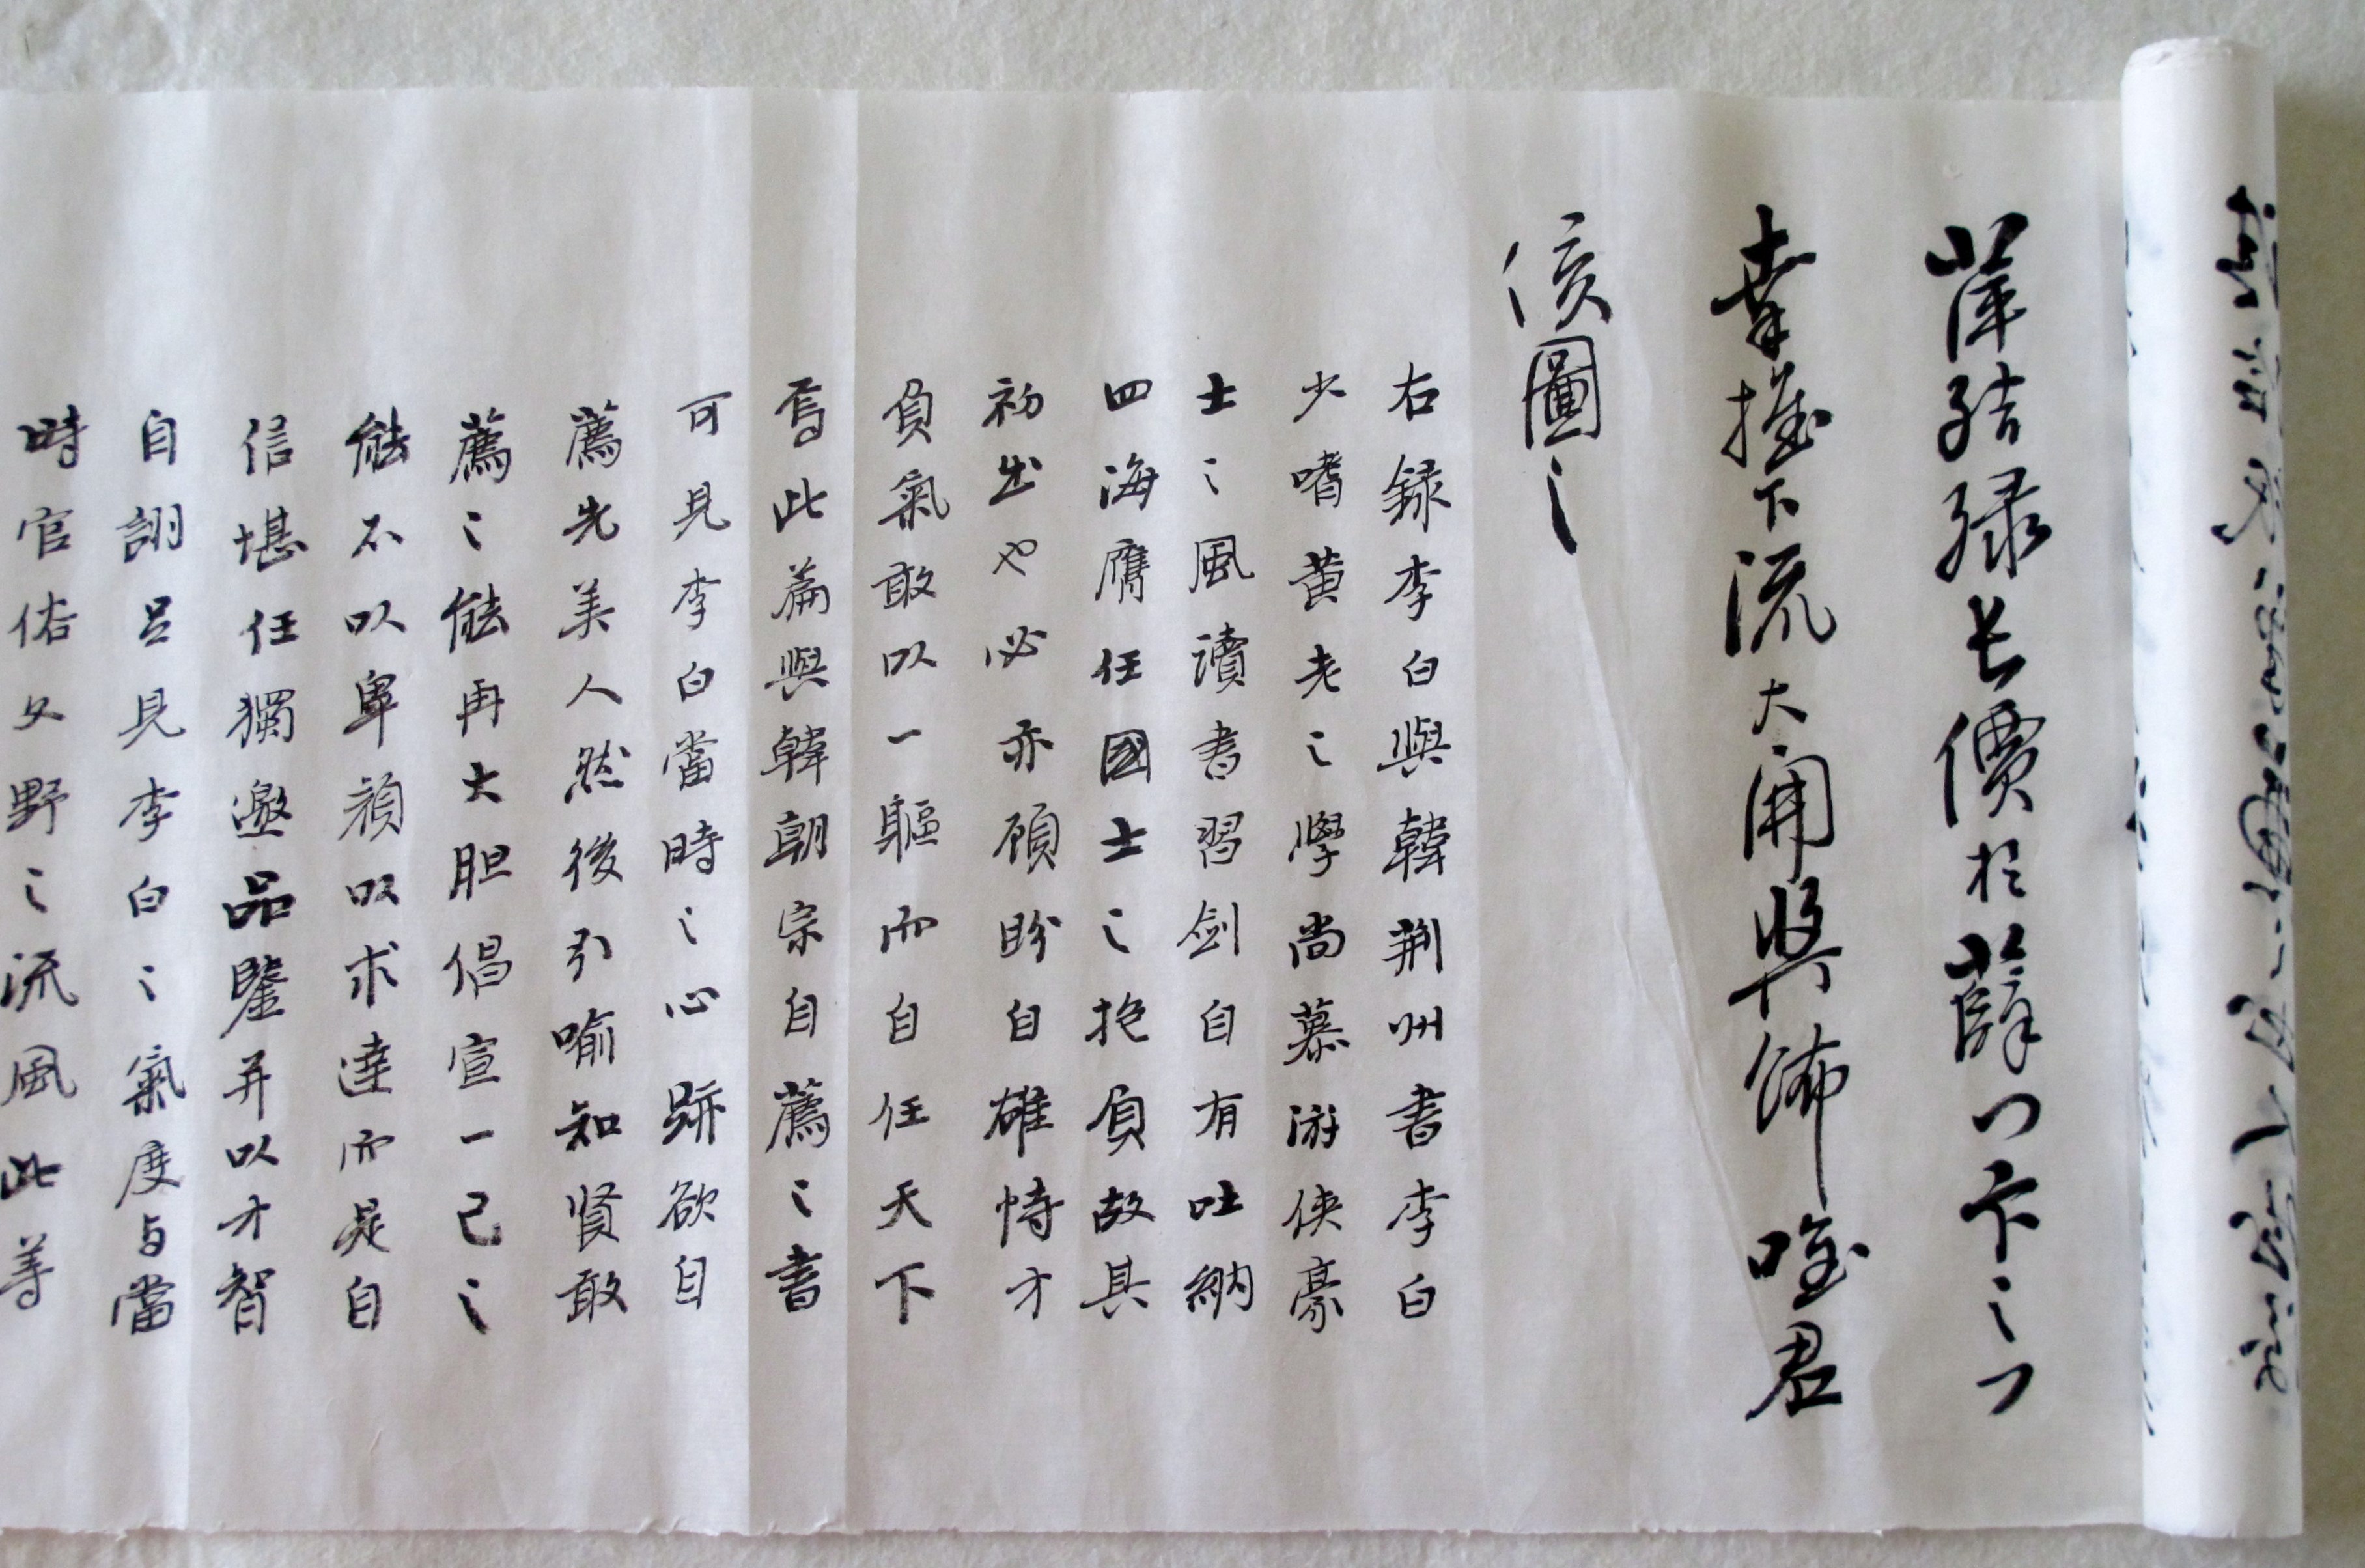 萍結緑长價扵薛门卞之门
幸推下流大開奬飾唯君
侯圖之
右録李白與韓荆州書李白
少嗜黄老之學尚慕游侠豪
士之風讀書習剑自有吐納
四海膺任國士之抱負故其
初出也必亦顧盼自雄恃才
負氣敢以一軀而自任天下
焉此篇與韓朝宗自薦之書
可見李白當時之心跡欲自
薦先美人然後引喻知贤敢
薦之能再大胆倡宣一己之
能不以卑顔以求達而是自
信堪任獨邀品鑒并以才智
自詡足見李白之氣度与當
時官俗文野之流風此等